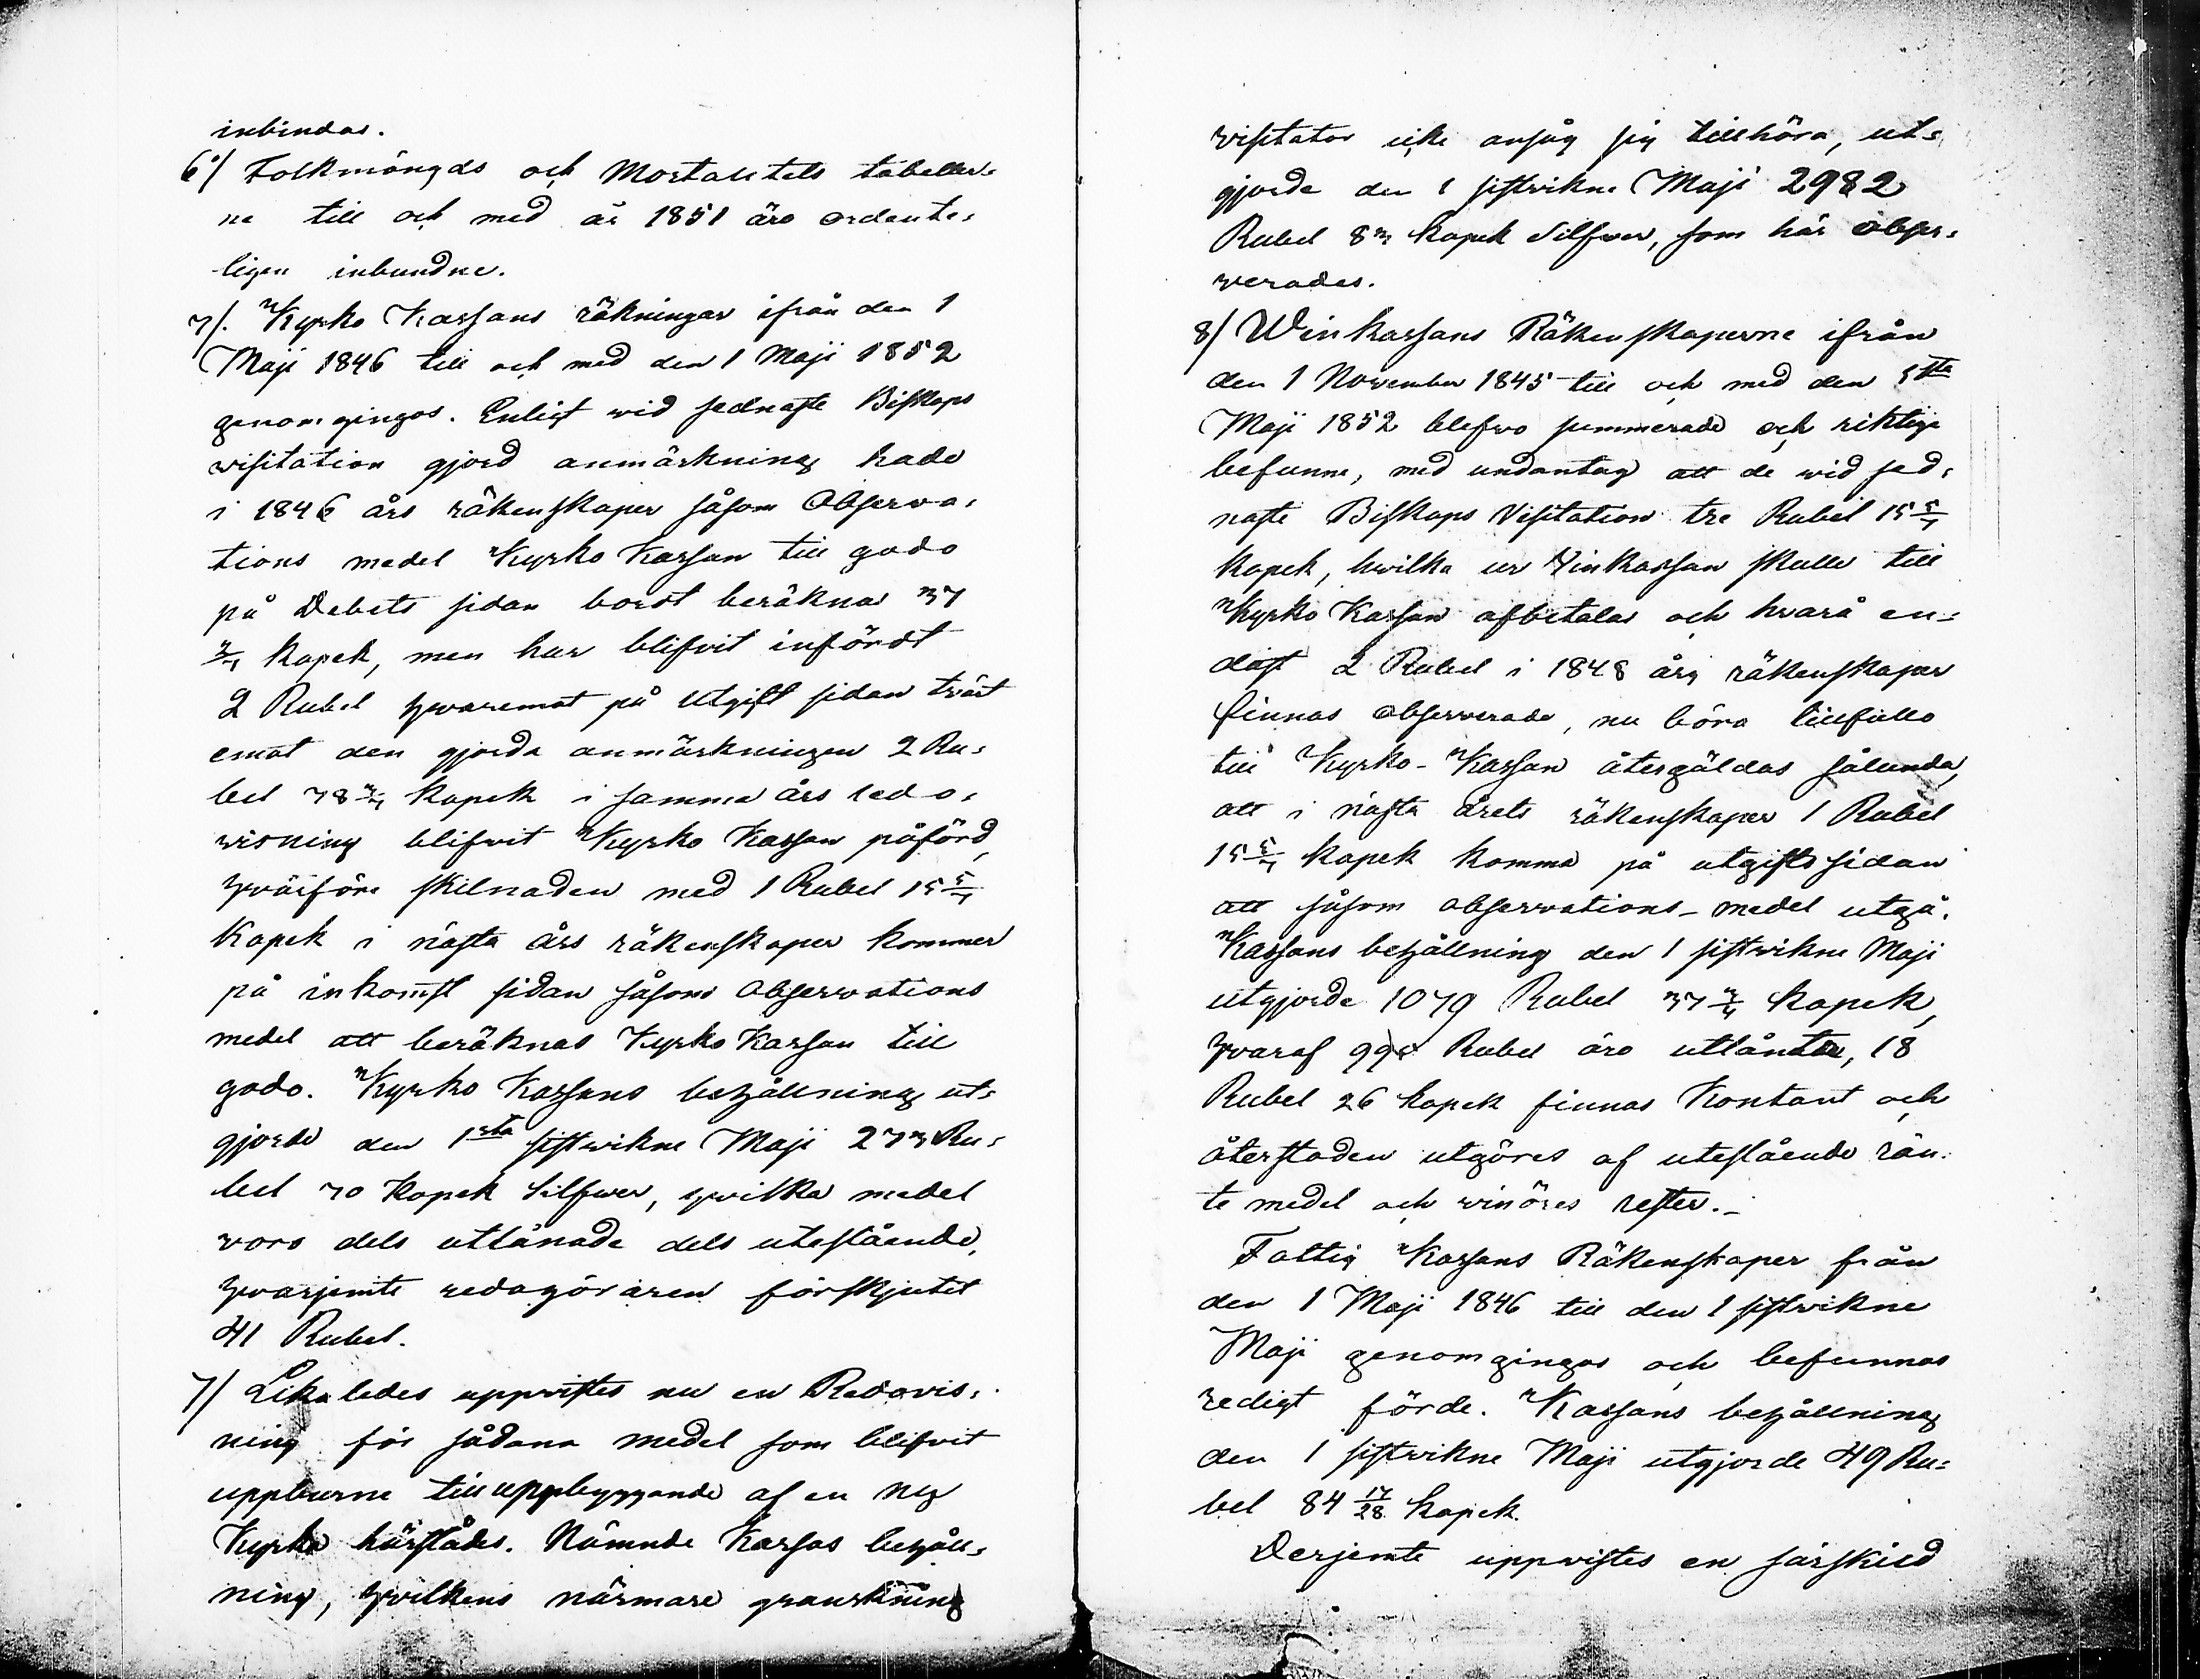 inbindas.
6/ Folkmängds och Mortalitets tabeller-
na till och med år 1851 äro ordente-
ligen inbundne.
7/. Kyrko Kassans räkningar ifrån den 1
Maji 1846 till och med den 1 Maji 1852
genomgingos. Enligt wid sednaste Biskops
visitation gjord anmärkning hade
i 1846 års räkenskaper såsom Observa-
tions medel Kyrko Kassan till godo
på Debets sidan bordt beräknas 37
3/7 kopek, men har blifvit infördt
2 Rubel hwaremot på Utgift sidan tvärt
emot den gjorda anmärkningen 2 Ru-
bel 78 4/7 kopek i samma års redo-
wisning blifvit Kyrko Kassan påförd,
hwarföre skilnaden med 1 Rubel 15 5/7
Kopek i nästa års räkenskaper kommer
på inkomst sidan såsom Observations
medel att beräknas Kyrko Kassan till
godo. Kyrko Kassans behållning ut-
gjorde den 1sta sistwikne Maji 273 Ru-
bel 70 Kopek Silfwer, hwilka medel
voro dels utlånade dels utestående,
hwarjemte redogöraren förskjutet
41 Rubel.
7/ Lika ledes uppvistes nu en Redovis-
ning för sådana medel som blifvit
uppburne till uppbyggande af en ny
Kyrka härstädes. Nämnde Kassas behåll-
ning, hwilkens närmare granskning
visitator icke ansåg sig tillhöra, ut-
gjorde den 1 sistwikne Maji 2982
Rubel 83 Kopek Silfwer, som här obser-
verades.
8/ Winkassans Räkenskaperne ifrån
den 1 November 1845 till och med den 1sta
Maji 1852 blefvo summerade och riktiga
befunne, med undantag att de wid sed-
naste Biskops Visitation tre Rubel 15 5/7
kopek, hvilka ur Vinkassan skulle till
Kyrko Kassan afbetalas och hvarå en-
dast 2 Rubel i 1848 års räkenskaper
finnas observerade, nu böra tillfullo
till Kyrko-Kassan återgäldas sålunda,
att i nästa årets räkenskaper 1 Rubel
15 5/7 kopek komma på utgiftssidan
att såsom observations-medel utgå.
Kassans behållning den 1 sistwikne Maji
utgjorde 1079 Rubel 37 3/4 kopek,
hwaraf 99 Rubel äro utlånte, 18
Rubel 26 kopek finnas Kontant och
återstoden utgöres af utestående rän-
te medel och vinöres rester.-
Fattig Kassans Räkenskaper från
den 1 Maji 1846 till den 1 sistwikne
Maji genomgingos och befunnos
redigt förde. Kassans behållning
den 1 sistwikne Maji utgjorde 49 Ru-
bel 84 17/28 kopek.
Derjemte uppvistes en särskild